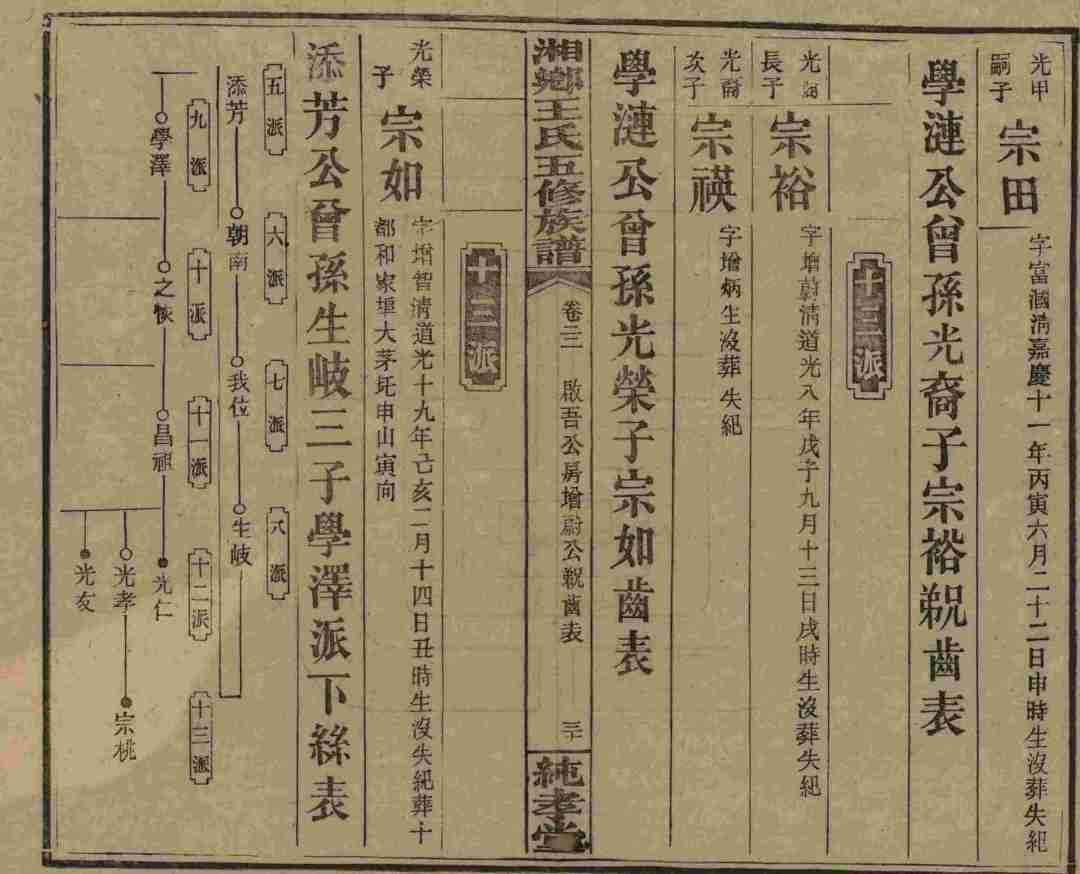 光甲
嗣子
宗田
字富國清嘉慶十一年丙寅六月二十二日申時生沒葬失紀
學漣公曾孫光裔子宗裕覜齒表
十三派
光裔
長子
宗裕
字增蔚清道光八年戊子九月十三日戌時生沒葬失紀
光裔
次子
宗禖
字增炳生沒葬失紀
學漣公曾孫光榮子宗如齒表
湘鄉王氏五修族譜
卷三二
啟吾公房增蔚公覜齒表
三十
純孝堂
十三派
光榮
子
宗如
字增智清道光十九年亡亥二月十四日丑時生沒失紀葬十
都和家埵大茅圫申山寅向
添芳公曾孫生岐三子學澤派下絲表
五派
六派
七派
八派
添芳
朝南
我位
生岐
九派
十派
十一派
十二派
十三派
學澤
之
昌
光仁
光孝
宗桃
光友